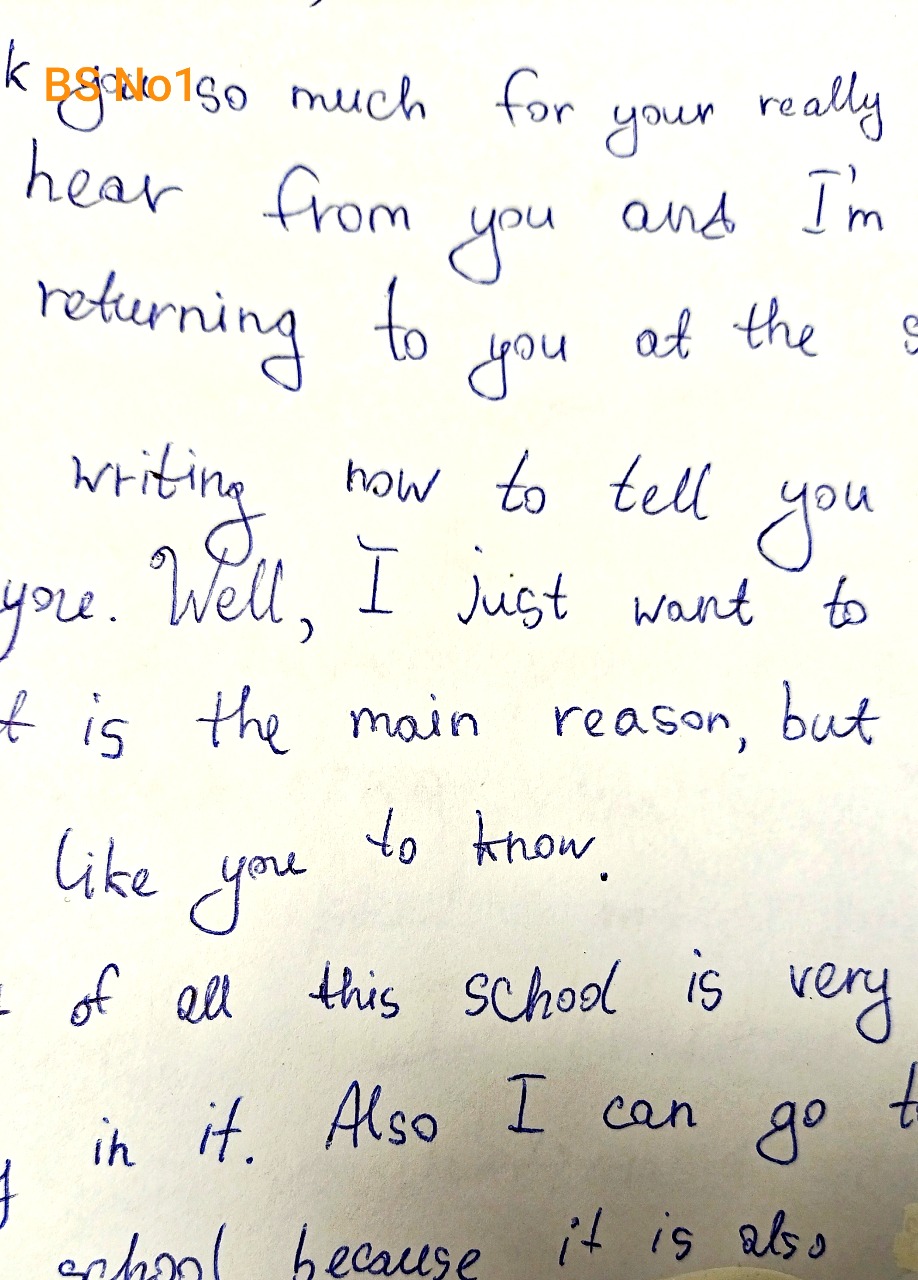 k you so much for your really
BS No1
hear from you and I'm
returning to you at the s
writing now to tell you
you. Well, I just want to
t is the main reason, but
like you to know.
of all this school is very
in it. Also I can go t
school because it is also